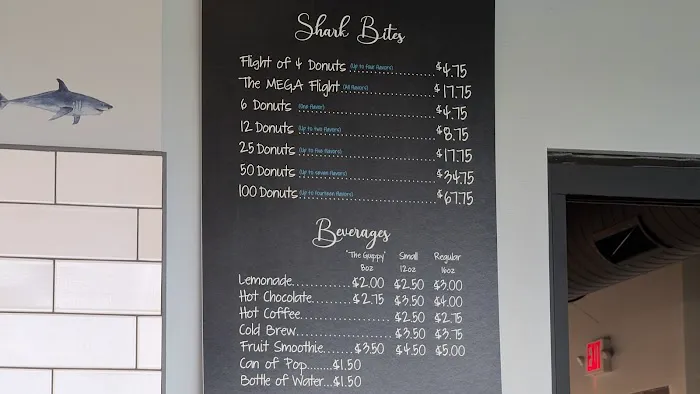 Shark Bites
Flight of 4 Donuts (Up to four flavors) $4.75
The MEGA Flight (All flavors) $17.75
6 Donuts (One flavor) $4.75
12 Donuts (Up to two flavors) $8.75
25 Donuts (Up to five flavors) $17.75
50 Donuts (Up to seven flavors) $34.75
100 Donuts (Up to fourteen flavors) $67.75
Beverages
"The Guppy" Small Regular
8oz 12oz 16oz
Lemonade $2.00 $2.50 $3.00
Hot Chocolate $2.75 $3.50 $4.00
Hot Coffee $2.50 $2.75
Cold Brew $3.50 $3.75
Fruit Smoothie $3.50 $4.50 $5.00
Can of Pop $1.50
Bottle of Water $1.50
EXIT